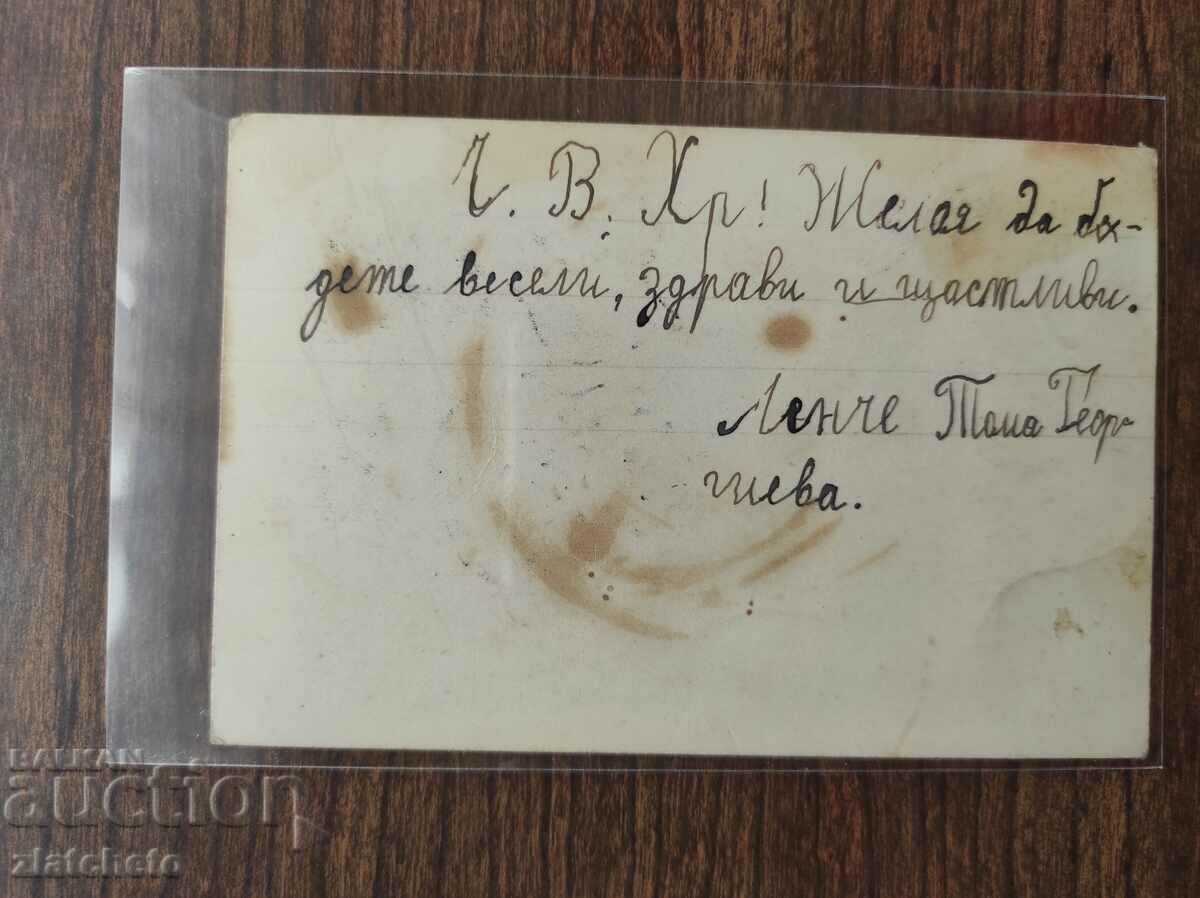 Ч. В. Хр! Желая да бѫ-
дете весели, здрави и щастливи.
Ленче Тома Геор-
гиева.
BALKAN
auction
zlatcheto